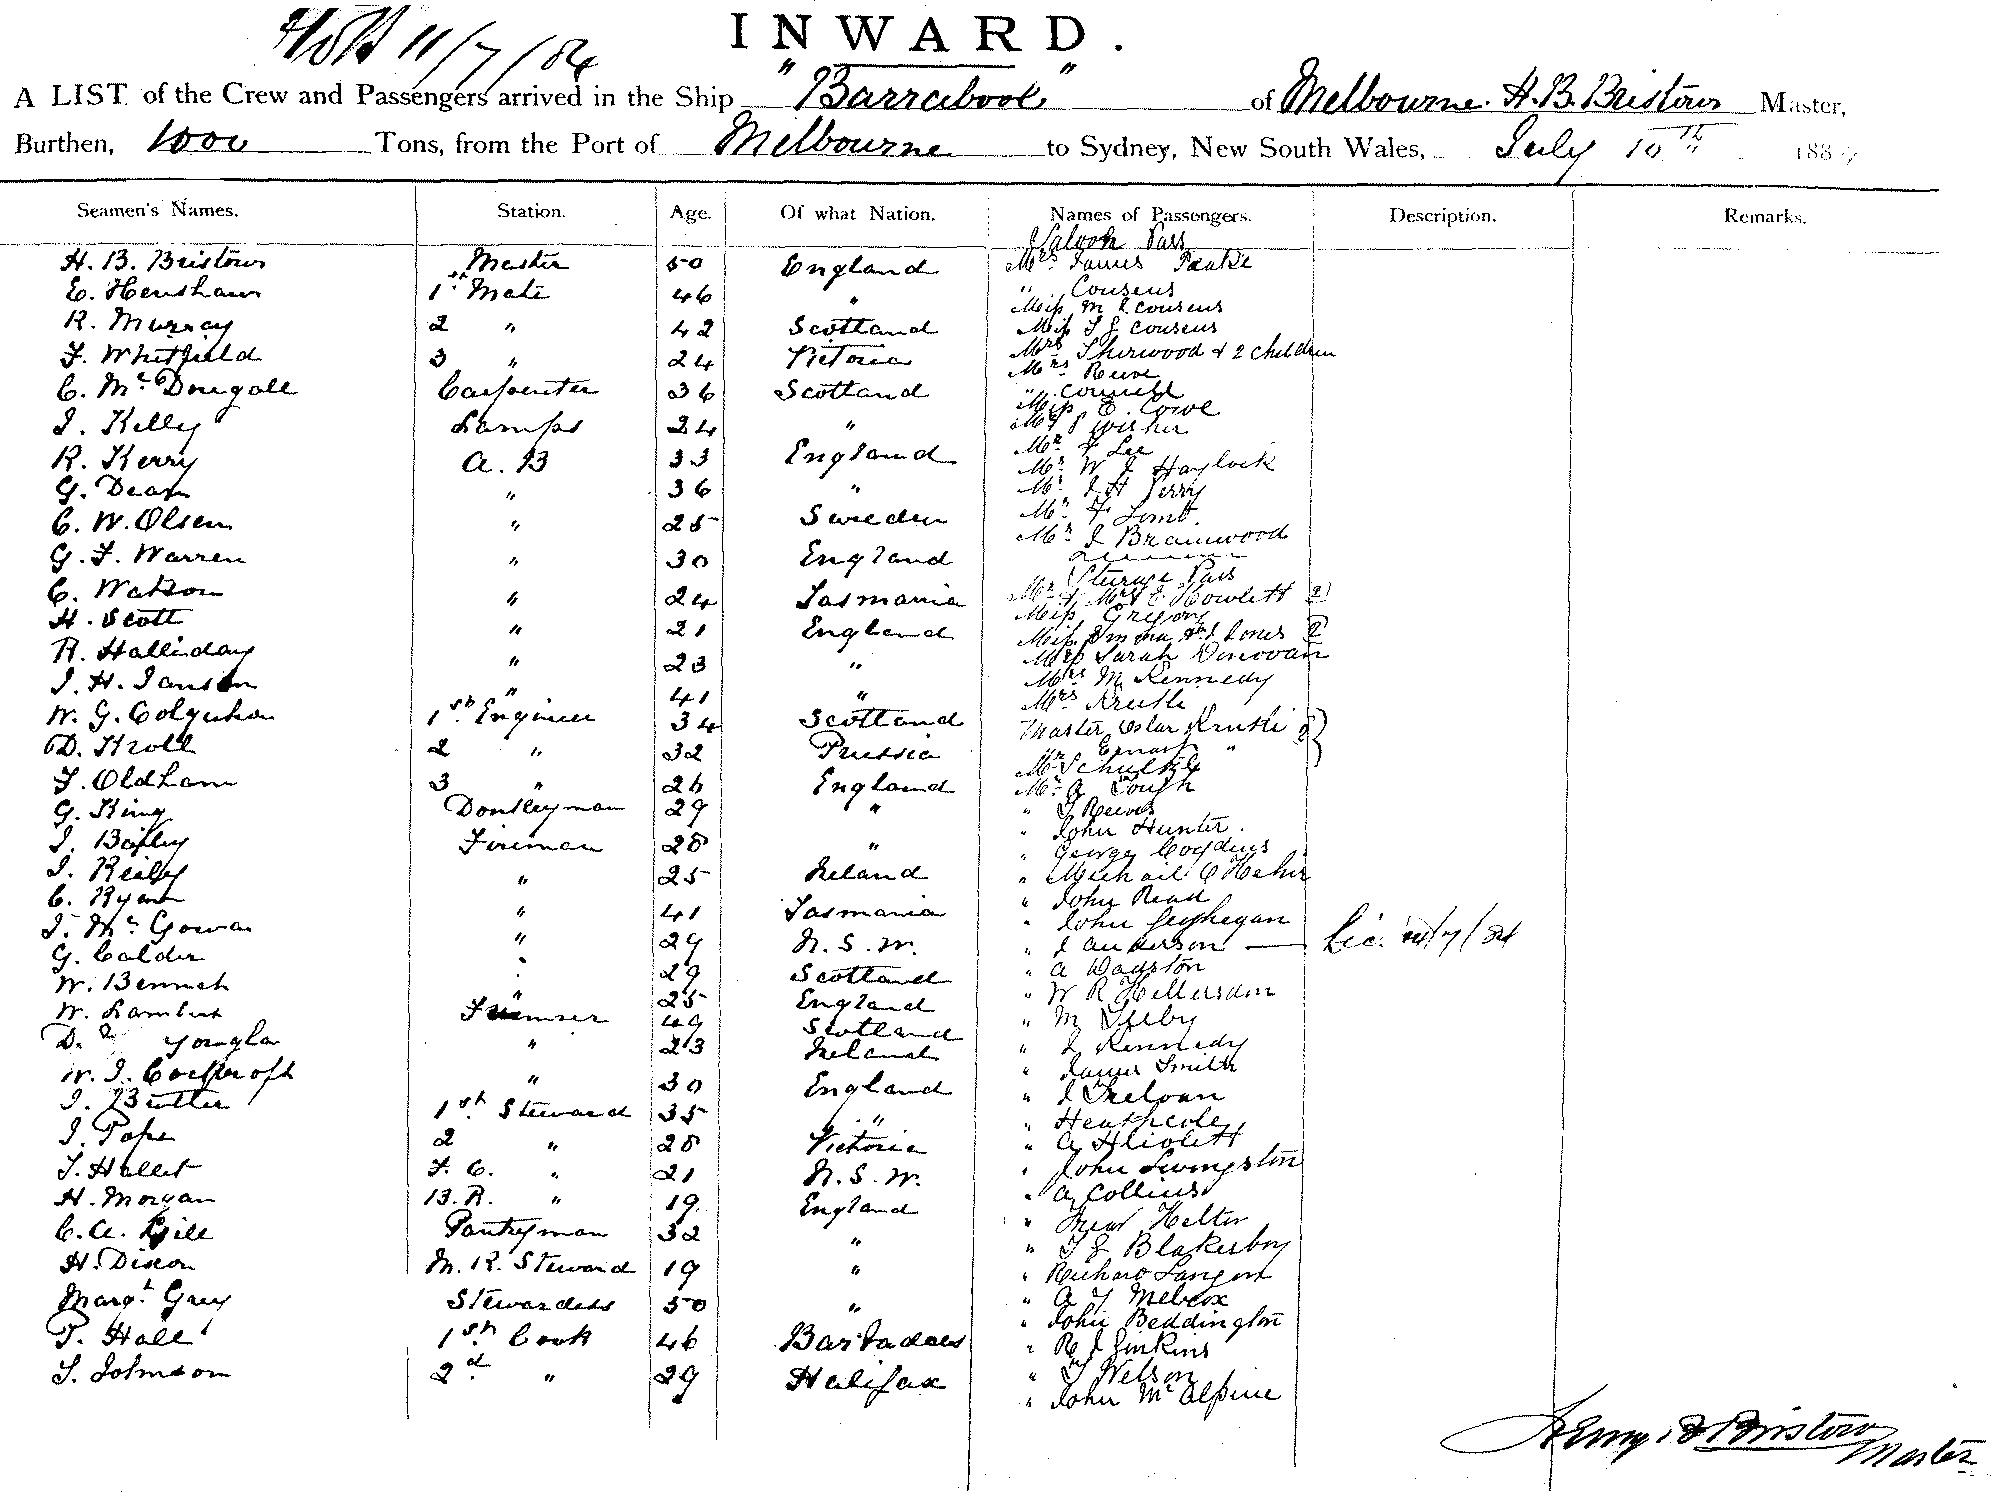 11/7/84
INWARD.
A LIST of the Crew and Passengers arrived in the Ship "Barrabool" of Melbourne. H. B. Bristow Master,
Burthen, 1000 Tons, from the Port of Melbourne to Sydney, New South Wales, July 10th 1884
Seamen's Names. Station. Age. Of what Nation. Names of Passengers. Description. Remarks.
H. B. Bristow Master 50 England
E. Henshaw 1st Mate 46 "
R. Murray 2 " 42 Scotland
F. Whitfield 3 " 24 Victoria
C. McDougall Carpenter 36 Scotland
J. Kelly Lamps 24 "
R. Kerry A. B 33 England
G. Dean " 36 "
C. W. Olsen " 25 Sweden
G. F. Warren " 30 England
C. Watson " 24 Tasmania
H. Scott " 21 England
R. Halliday " 23 "
J. H. Janson " 41 "
W. G. Colquhon 1st Engineer 34 Scotland
D. Kroll 2 " 32 Prussia
F. Oldham 3 " 26 England
G. King Donkeyman 29 "
J. Bailey Fireman 28 "
J. Reilly " 25 Ireland
C. Ryan " 41 Tasmania
J. McGowan " 29 N. S. W.
G. Calder " 29 Scotland
W. Bennet " 25 England
W. Lambert Trimmer 49 Scotland
D. " 23 Ireland
W. J. " 30 England
J. Butler 1st Steward 35 "
J. Pope 2 " 28 Victoria
T. Hallet F. C. " 21 N. S. W.
H. Morgan B. R. " 19 England
C. A. Gill Pantryman 32 "
H. Dixon M. R. Steward 19 "
Margt Grey Stewardess 50 "
T. Hall 1st Cook 46 Barbadoes
T. Johnson 2d " 29 Halifax
Saloon Pass
Mrs James
" Cousens
Miss M J Cousens
Miss J E Cousens
Mrs Sherwood & 2 children
Mrs
"
Miss E. Cowe
Mr Wisher
Mr F Lee
Mr W J Haylock
Mr J H Perry
Mr F
Mr J Bramwood
Steerage Pass
Mr & Mrs E Howlett 2
Miss Gregory
Miss Emma Jones 2
Miss Sarah Donovan
Mrs M Kennedy
Mrs
Master Oscar
Ernest "
Mr
Mr A Gough
" Reeves
" John Hunter.
" George
" Michail O'Hehir
" John Read
" John Geoghegan
" J Anderson — Lic. 11/7/84
" A
" W R
" M
" J Kennedy
" James Smith
" J Treloan
" Heathcote
" A
" John Livingston
" A Collins
"
" T J Blakesboy
" Richard
" A T
" John Beddington
" R J Jinkins
" T Nelson
" John McAlpine
Henry B Bristow
Master